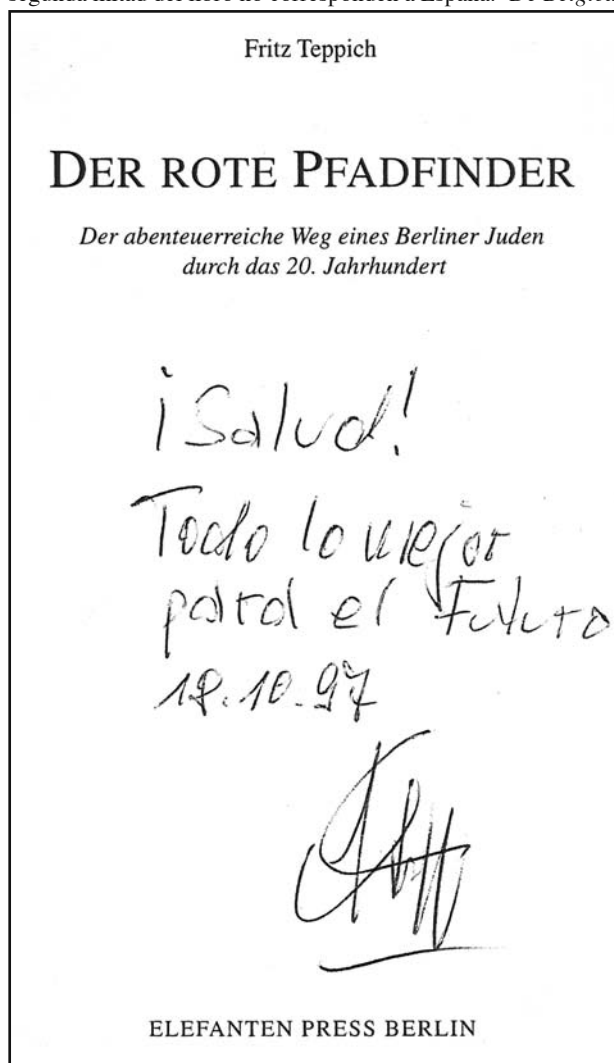 Fritz Teppich
DER ROTE PFADFINDER
Der abenteuerreiche Weg eines Berliner Juden
durch das 20. Jahrhundert
¡Salud!
Todo lo mejor
para el Futuro
18.10.97
ELEFANTEN PRESS BERLIN